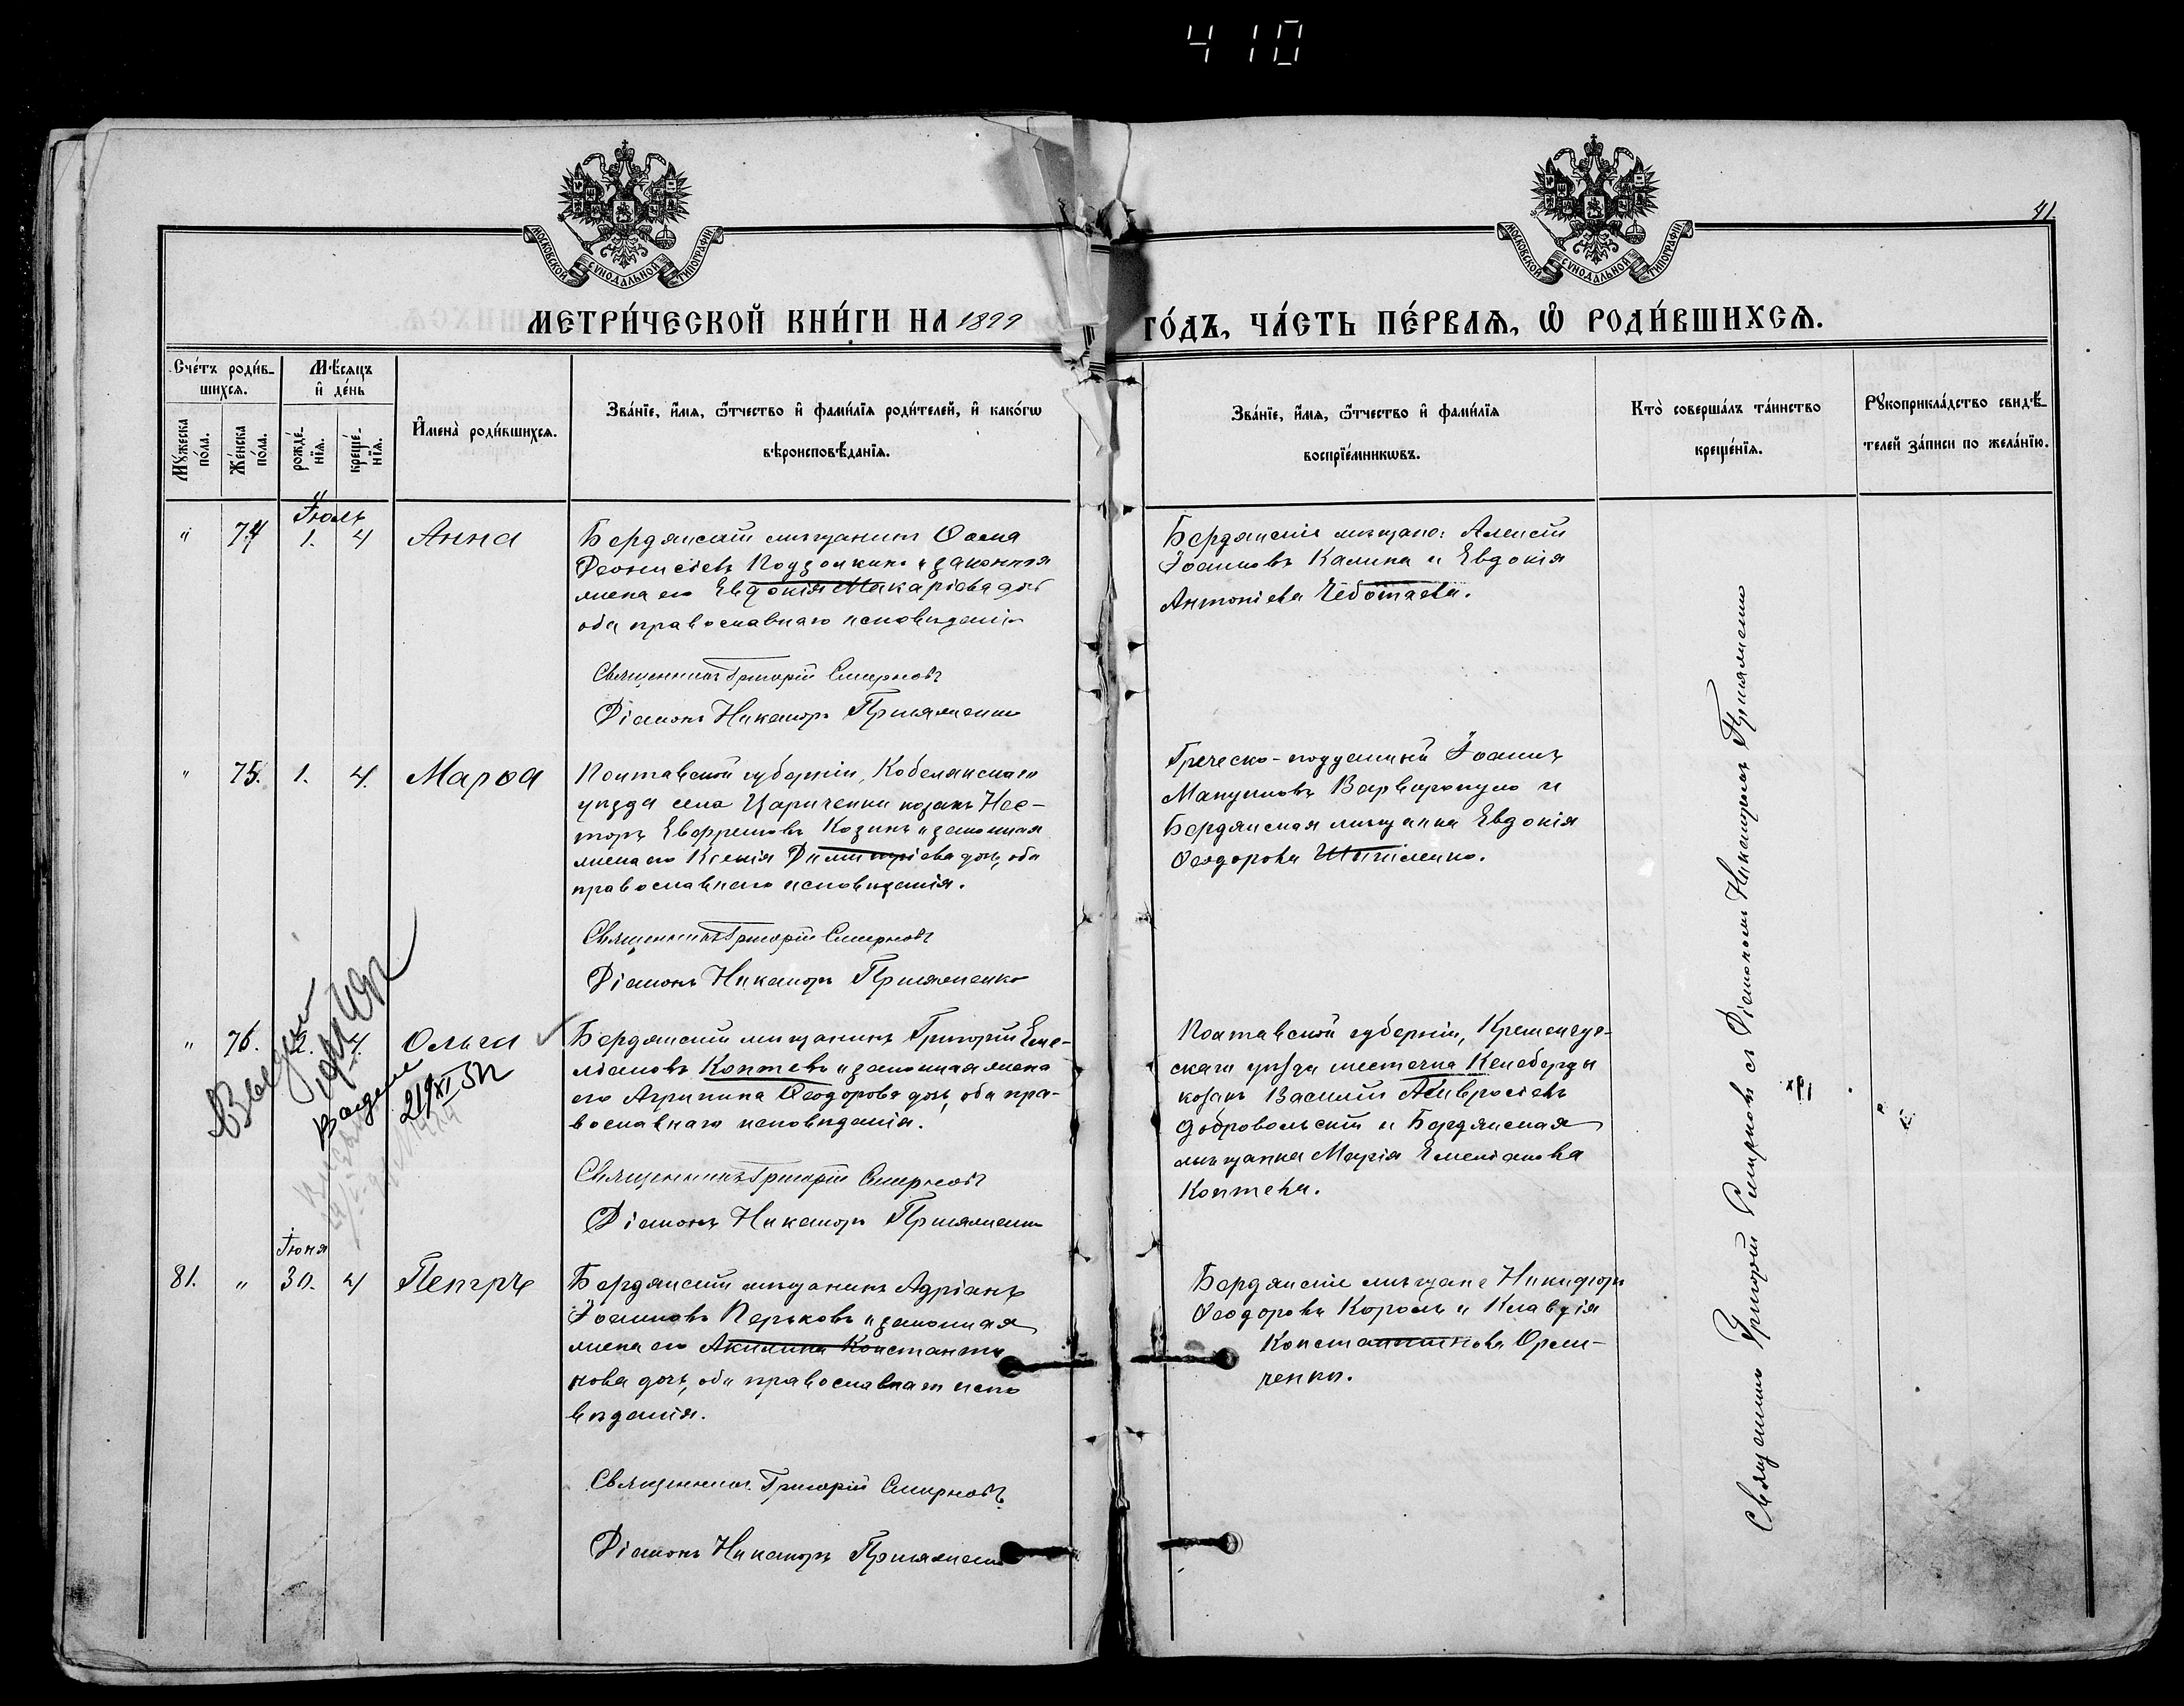 410
41
МОСКОВСКОЙ СѴНОДАЛЬНОЙ ТИПОГРАФІИ
МОСКОВСКОЙ СѴНОДАЛЬНОЙ ТИПОГРАФІИ
МЕТРИ́ЧЕСКОЙ КНИ́ГИ НА 1899 ГО́ДЪ, ЧА́СТЬ ПЕ́РВАѦ, Ѡ҆ РОДИ́ВШИХСѦ.
Сче́тъ роди́в-
шихсѧ.
Мꙋ́жеска по́ла.
Же́нска по́ла.
Мѣ́сѧцъ
и҆ де́нь
рожде́-нїѧ.
креще́-нїѧ.
И҆мена̀ роди́вшихсѧ.
Зва́нїе, и҆́мѧ, ѻ҆́тчество и҆ фами́лїѧ роди́телей, и҆ како́гѡ
вѣроисповѣ́данїѧ.
Зва́нїе, и҆́мѧ, ѻ҆́тчество и҆ фами́лїѧ
воспрїе́мникѡвъ.
Кто̀ соверша́лъ та́инство
креще́нїѧ.
Рꙋкоприкла́дство свидѣ́-
телей за́писи по жела́нїю.
Іюль
" 74 1. 4 Анна
Бердянскій мѣщанинъ Ѳома
Діонисіевъ и законная
жена его Евдокія Макаріева дочь
оба православнаго исповѣданія
Священникъ Григорій Смирновъ
Діаконъ Никаноръ
Бердянскіе мѣщане: Алексій
Іоанновъ Калина и Евдокія
Антоніева Чеботаева.
" 75. 1. 4. Марѳа
Полтавской губерніи, Кобелякскаго
уѣзда села Цариченки козакъ Нес-
торъ Евфремовъ Козинъ и законная
жена его Ксенія Димитріева дочь, оба
православнаго исповѣданія.
Священникъ Григорій Смирновъ
Діаконъ Никаноръ
Греческо-подданный Іоаннъ
Мануиловъ Варваропуло и
Бердянская мѣщанка Евдокія
Ѳеодорова
" 76. 2. 4. Ольга
Бердянскій мѣщанинъ Григорій Еме-
ліановъ Коптевъ и законная жена
его Агрипина Ѳеодорова дочь, оба пра-
вославнаго исповѣданія.
Священникъ Григорій Смирновъ
Діаконъ Никаноръ
Полтавской губерніи, Кременчуг-
скаго уѣзда местечка Келеберды
козакъ Василій Амвросіевъ
Добровольскій и Бердянская
мѣщанка Марія Емеліанова
Коптева.
Іюня
81. " 30. 4 Петръ
Бердянскій мѣщанинъ Адріанъ
Іоанновъ Перьковъ и законная
жена его Акилина Константи
нова дочь, оба православнаго испо
вѣданія.
Священникъ Григорій Смирновъ
Діаконъ Никаноръ
Бердянскіе мѣщане Никифоръ
Ѳеодоровъ Король и Клавдія
Константинова
ченко.
Священникъ Григорій Смирновъ съ Діакономъ Никаноромъ